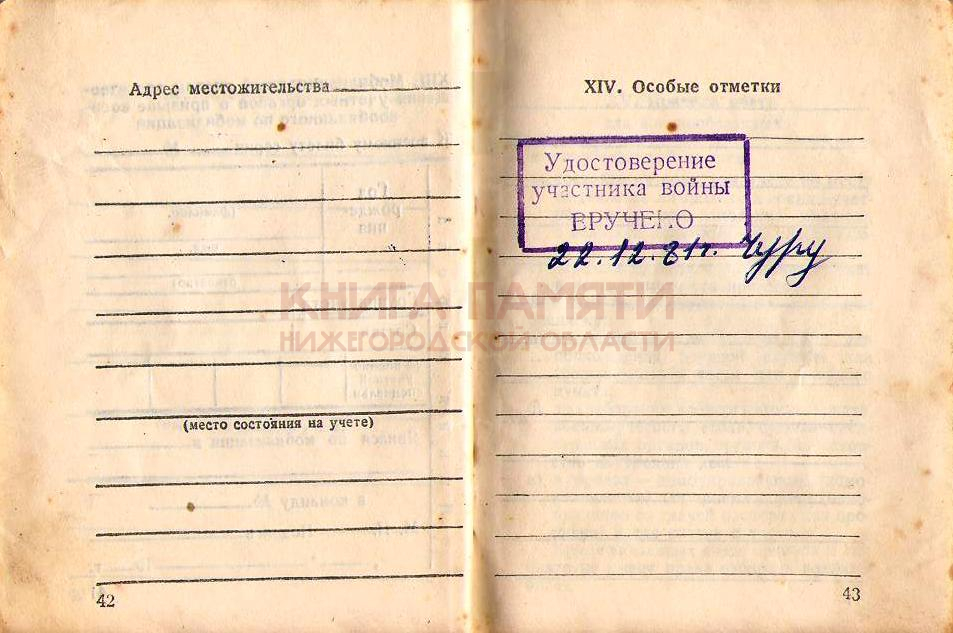 Адрес местожительства
(место состояния на учете)
42
XIV. Особые отметки
Удостоверение
участника войны
ВРУЧЕНО
22.12.81г.
43
КНИГА ПАМЯТИ
НИЖЕГОРОДСКОЙ ОБЛАСТИ